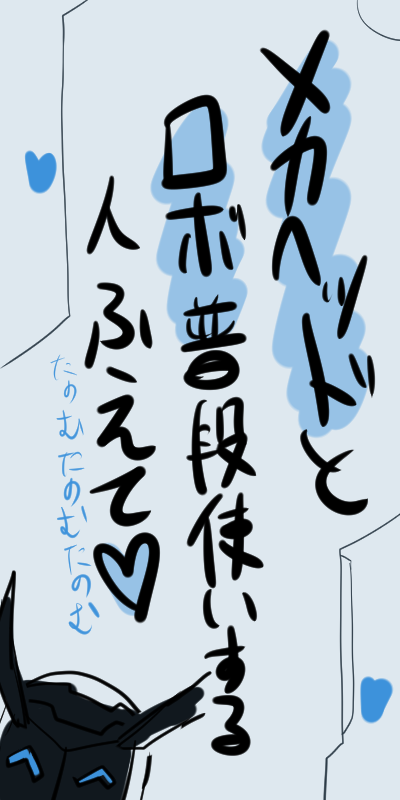 メカヘッドと
ロボ普段使いする
人ふえて♡
たのむたのむたのむ